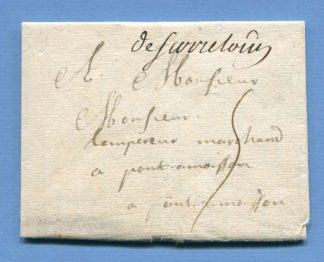 de Sarrelouis
A Monsieur
Monsieur
Lampereur marchand
a pont amosson
a pont a mosson
5